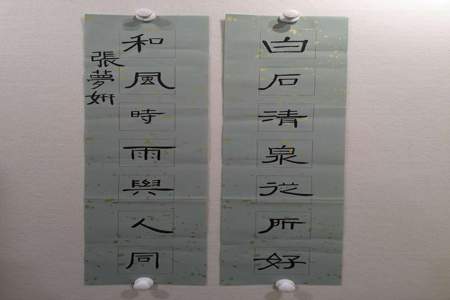 白石清泉從所好
和風時雨與人同
張夢妍